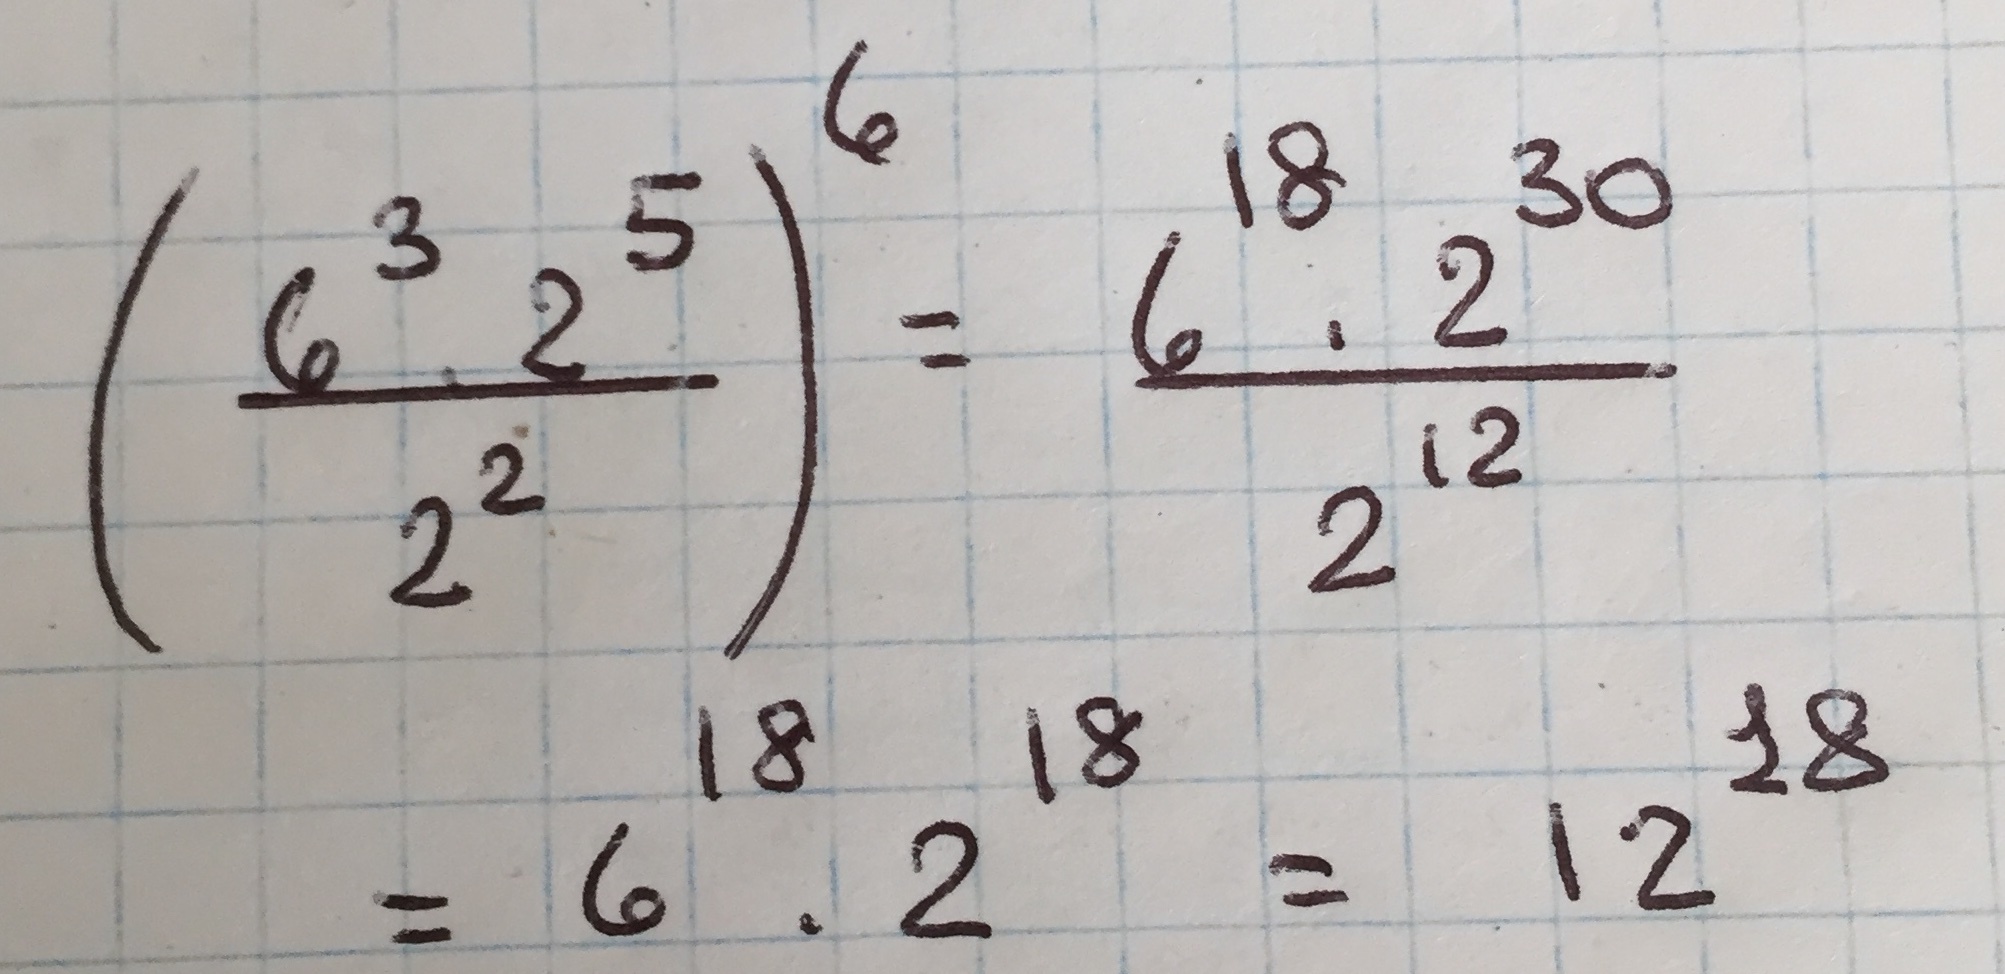 (6³·2⁵/2²)⁶ = 6¹⁸·2³⁰/2¹²
= 6¹⁸·2¹⁸ = 12¹⁸